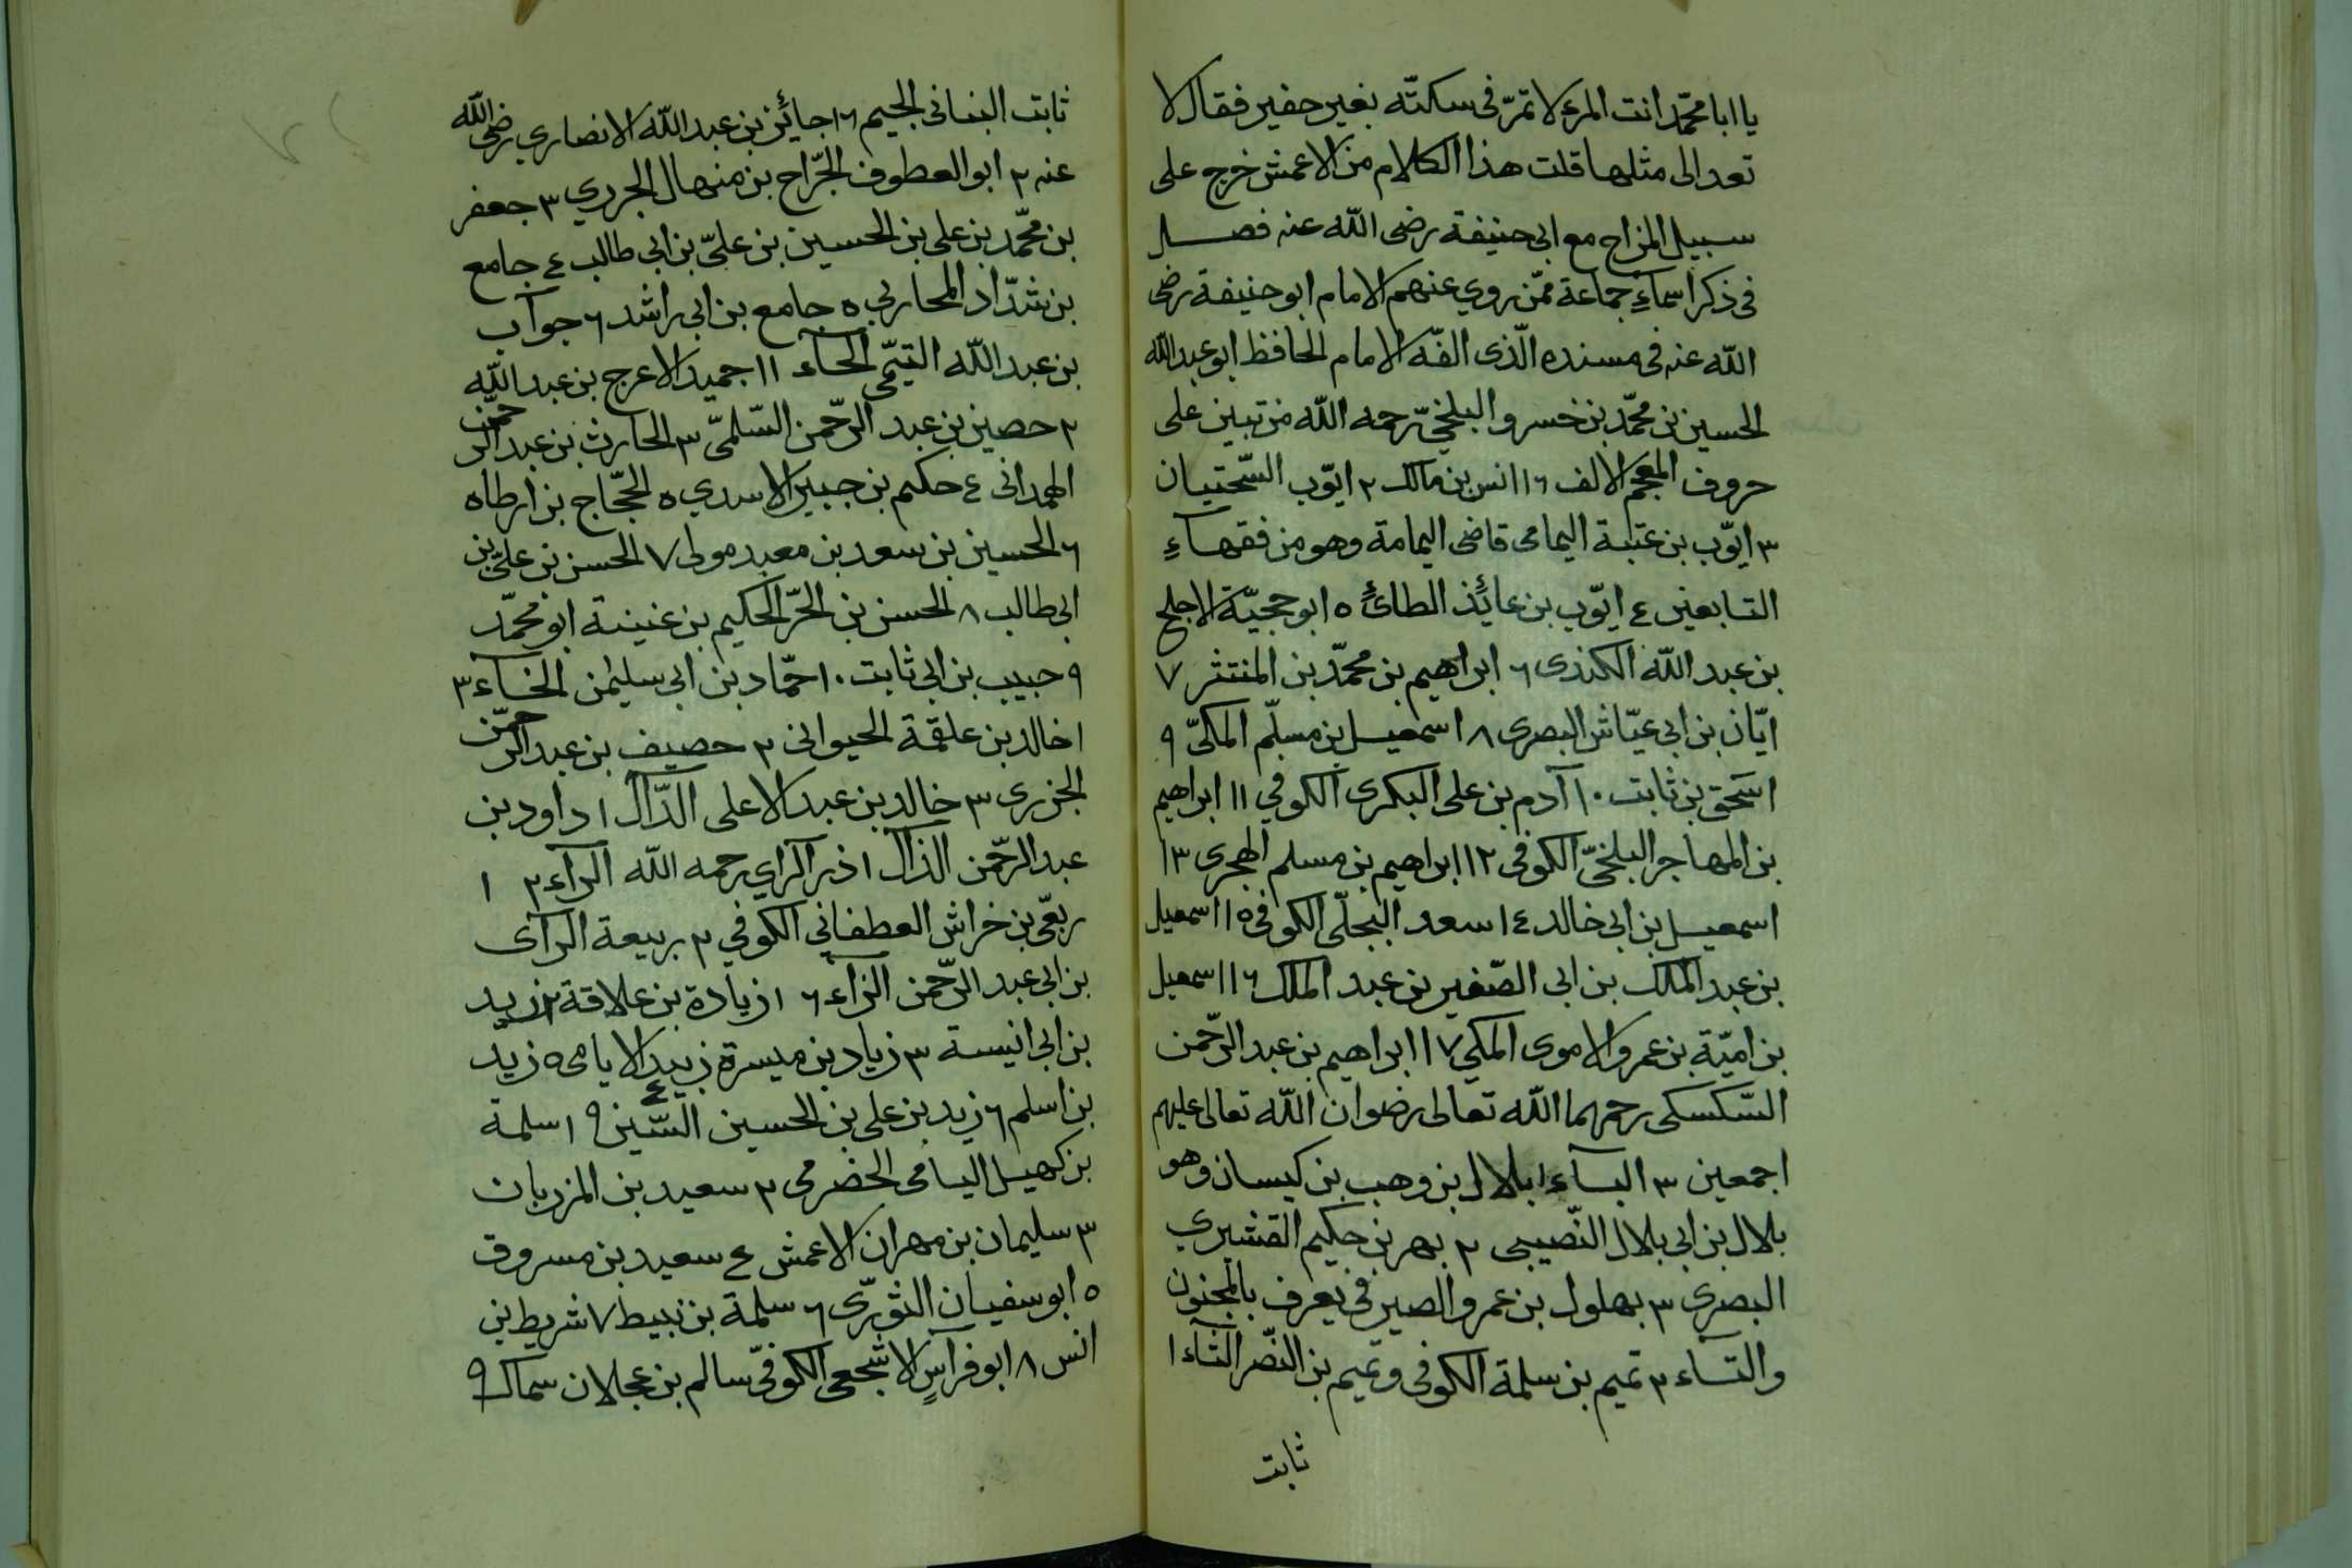 يا ابا محمّد انت المرء لا تمرّ فى سكتّه بغير حفير فقال لا
تعد الى مثلها قلت هذا الكلام من الاعمش خرج على
سبيل المزاح مع ابى حنيفة رضى الله عنه فصل
فى ذكر اسماء جماعة ممّن روي عنهم الامام ابو حنيفة رضى
الله عنه فى مسنده الّذى الفّه الامام الحافظ ابو عبد الله
الحسين بن محمّد بن خسرو البلخيّ رحمه الله من تبين على
حروف المعجم الالف ١٦ انس بن مالك ٢ ايّوب السّختيان
٣ ايّوب بن عتبة اليمامى قاضى اليمامة وهو من فقهاء
التابعين ٤ ايّوب بن عائذ الطائ ٥ ابو حجيّة الاجلح
بن عبد الله الكندى ٦ ابراهيم بن محمّد بن المنتثر ٧
ايّان بن ابى عيّاش البصرى ٨ اسمعيل بن مسلّم المكىّ ٩
اسحق بن ثابت ١٠ آدم بن على البكرى الكوفي ١١ ابراهيم
بن المهاجر البلخىّ الكوفى ١٢ ابراهيم بن مسلم الهجرى ١٣
اسمعيل بن ابى خالد ١٤ سعد البجلّى الكوفى ١٥ اسمعيل
بن عبد الملك بن ابى الصّفير بن عبد الملك ١٦ اسمعيل
بن اميّة بن عمرو الاموى المكي ١٧ ابراهيم بن عبد الرّحمن
السّكسكى رحمهما الله تعالى رضوان الله تعالى عليهم
اجمعين ٣ الباء ١ بلال بن وهب بن كيسان وهو
بلال بن ابى بلال النّصيبى ٢ بهر بن حكيم القشيري
البصرى ٣ بهلول بن عمرو الصيرفى يعرف بالمجنون
والتاء ٢ تميم بن سلمة الكوفى وتميم بن النصّر الثاء ١
ثابت
ثابت البنانى الجيم ١٦ جائز بن عبد الله الانصاري رضى الله
عنه ٢ ابو العطوف الجّراح بن منهال الجردي ٣ جعفر
بن محمّد بن على بن الحسين بن علىّ بن ابى طالب ٤ جامع
بن شدّاد المحاربى ٥ جامع بن ابى راشد ٦ جوآب
بن عبد الله التيمّى الحآء ١١ حميد الاعرج بن عبد الله
٢ حصين بن عبد الرّحمن السّلمىّ ٣ الحارث بن عبد الرحمّن
الهمدانى ٤ حكيم بن جبير الاسدي ٥ الحجّاج بن ارطاه
٦ الحسين بن سعد بن معبد مولى ٧ الحسن بن علىّ بن
ابى طالب ٨ الحسن بن الحرّ الحكيم بن عنينة ابو محمّد
٩ حبيب بن ابى ثابت ١٠ حمّاد بن ابى سليمٰن الخاء ٣
١ خالد بن علقمة الحيوانى ٢ حصيف بن عبد الرحمّن
الجزرى ٣ خالد بن عبد الاعلى الدّال ١ داود بن
عبد الرّحمن الذال ١ ذر الراي رحمه الله الرآء ٢ ١
ربعّى بن خراش العطفاني الكوفي ٢ ربيعة الرآى
بن ابى عبد الرّحمن الزاء ٦ ١ زيادة بن علاقة ٢ زيد
بن ابى انيسة ٣ زياد بن ميسرة ٤ زبيد الايامى ٥ زيد
بن اسلم ٦ زيد بن على بن الحسين السّين ٩ ١ سلمة
بن كهيل اليامى الحضرمى ٢ سعيد بن المزربان
٣ سليمان بن مهران الاعمش ٤ سعيد بن مسروق
٥ ابو سفيان الثورّى ٦ سلمة بن نبيط ٧ شريط بن
انس ٨ ابو فراس الاشجعى الكوفىّ سالم بن عجلان سماك ٩